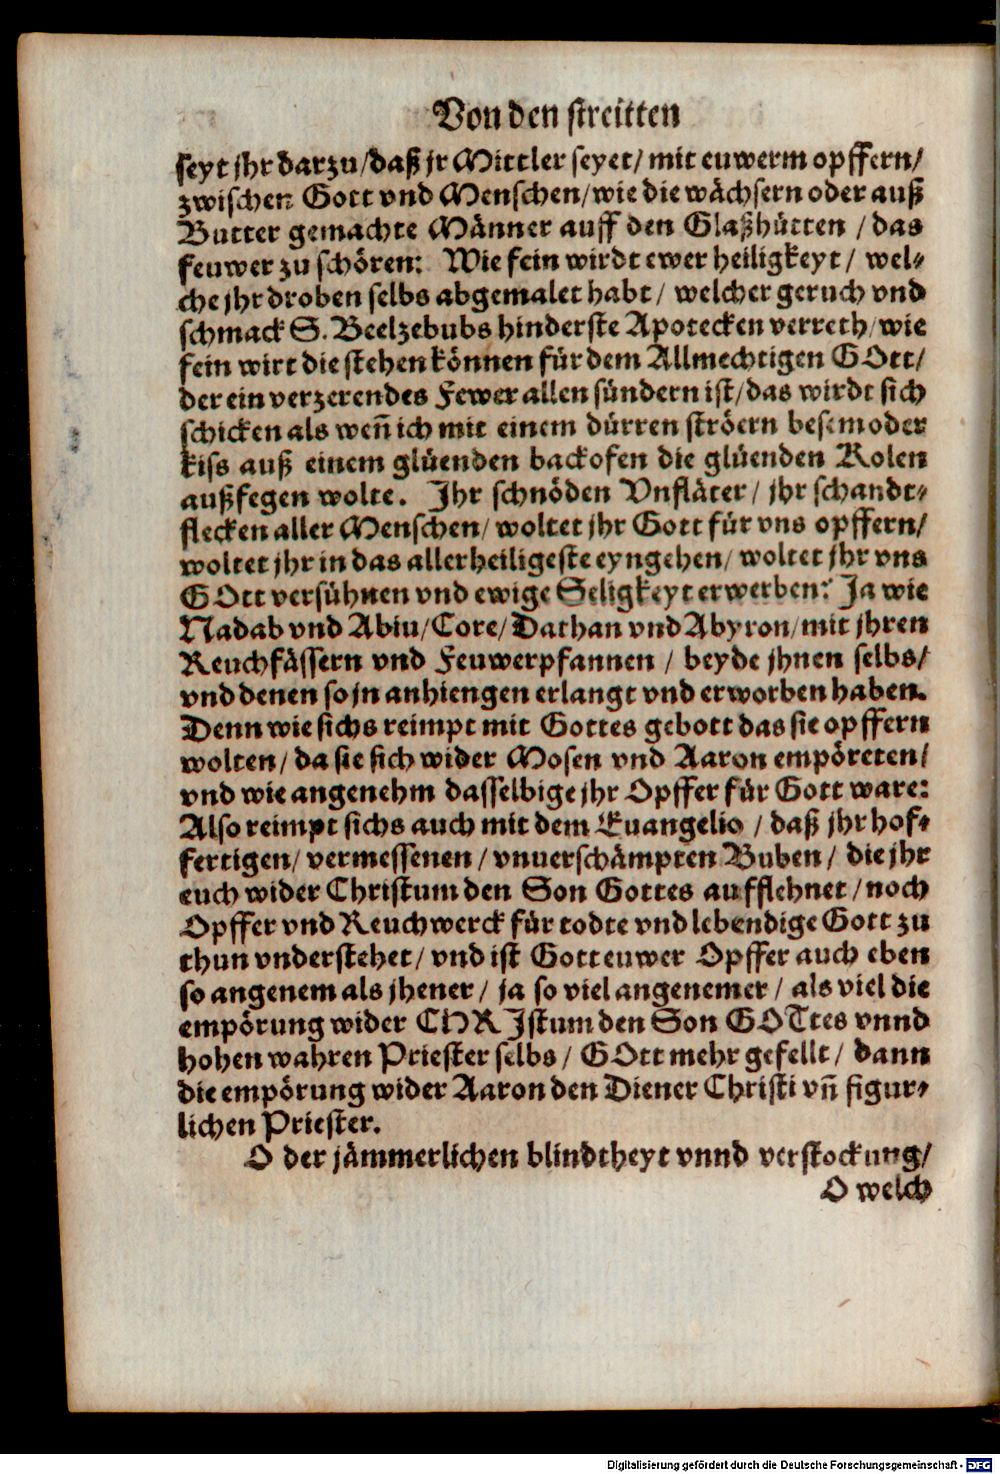 Von den streitten
seyt jhr darzu/daß jr Mittler seyet/ mit euwerm opffern/
zwischen Gott vnd Menschen/wie die wächsern oder auß
Butter gemachte Männer auff den Glaßhütten /das
feuwer zu schören: Wie fein wirdt ewer heiligkeyt/ wel-
che jhr droben selbs abgemalet habt/ welcher geruch vnd
schmack S. Beelzebubs hinderste Apotecken verreth/wie
fein wirt die stehen können für dem Allmechtigen GOtt/
der ein verzerendes Fewer allen sündern ist/das wirdt sich
schicken als weñ ich mit einem dürren ströern besem oder
kiss auß einem glüenden backofen die glüenden Kolen
außfegen wolte. Ihr schnöden Vnfläter/ jhr schandt-
flecken aller Menschen/ woltet jhr Gott für vns opffern/
woltet jhr in das allerheiligeste eyngehen/ woltet jhr vns
GOtt versühnen vnd ewige Seligkeyt erwerben? Ja wie
Nadab vnd Abiu/Core/Dathan vnd Abyron/mit jhren
Reuchfässern vnd Feuwerpfannen / beyde jhnen selbs/
vnd denen so jn anhiengen erlangt vnd erworben haben.
Denn wie sichs reimpt mit Gottes gebott das sie opffern
wolten/ da sie sich wider Mosen vnd Aaron empöreten/
vnd wie angenehm dasselbige jhr Opffer für Gott ware:
Also reimpt sichs auch mit dem Euangelio / daß jhr hof-
fertigen/ vermessenen /vnuerschämpten Buben/ die jhr
euch wider Christum den Son Gottes aufflehnet /noch
Opffer vnd Reuchwerck für todte vnd lebendige Gott zu
thun vnderstehet/ vnd ist Gott euwer Opffer auch eben
so angenem als jhener/ ja so viel angenemer/ als viel die
empörung wider CHRIstum den Son GOTtes vnnd
hohen wahren Priester selbs/ GOtt mehr gefellt/ dann
die empörung wider Aaron den Diener Christi vñ figur-
lichen Priester.
O der jämmerlichen blindtheyt vnnd verstockung/
O welch
Digitalisierung gefördert durch die Deutsche Forschungsgemeinschaft - DFG